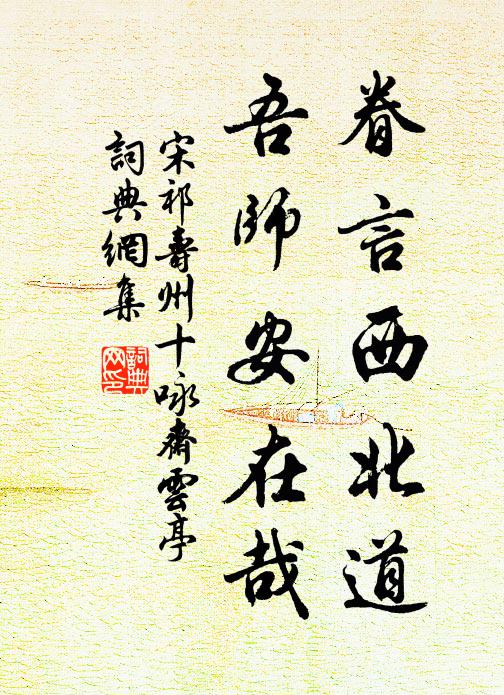 眷言西北道
吾師安在哉
宋祁壽州十咏齊雲亭
詞典網集
詞典网印